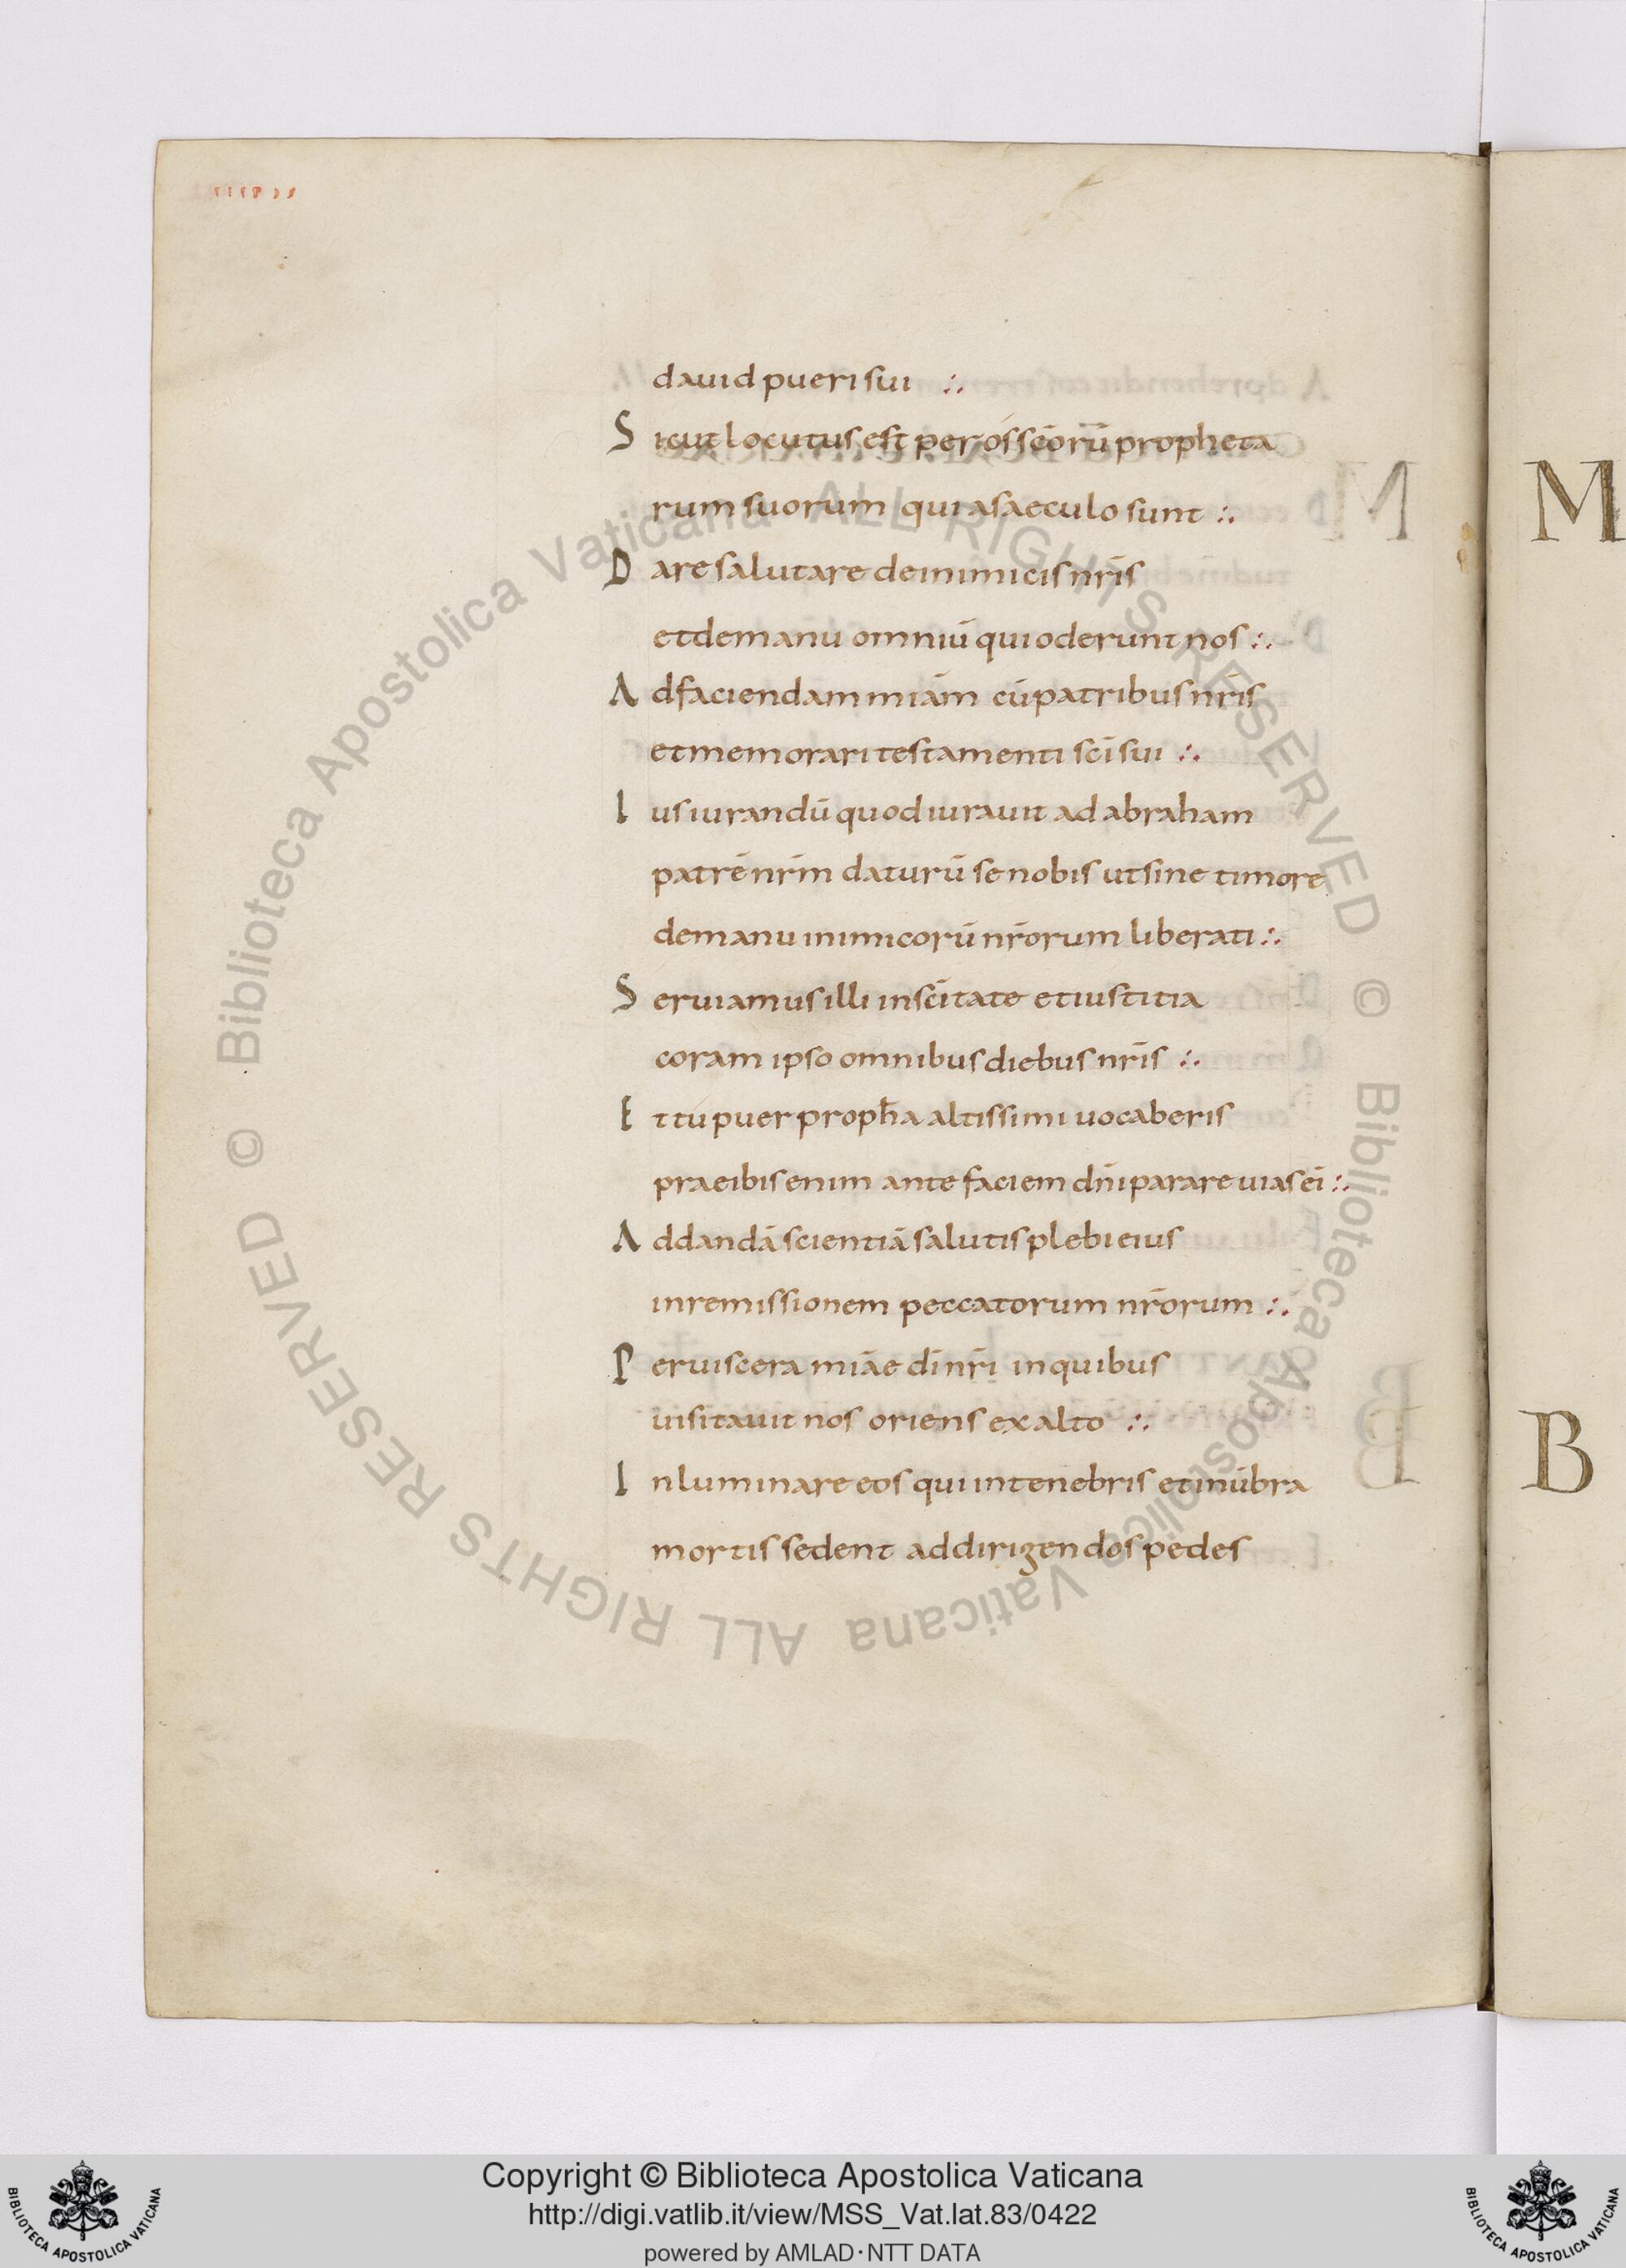 dauid pueri sui ∴
Sicut locutus est per os scōrū propheta
rum suorum qui a saeculo sunt ∴
Dare salutare de inimicis nr̄is
et de manu omniū qui oderunt nos ∴
Ad faciendam miām cū patribus nr̄is
et memorari testamenti scī sui ∴
Iusiurandū quod iurauit ad abraham
patrē nr̄m daturū se nobis ut sine timore
de manu inimicorū nr̄orum liberati ∴
Seruiamus illi in scītate et iustitia
coram ipso omnibus diebus nr̄is ∴
Et tu puer proph̄a altissimi uocaberis
praeibis enim ante faciem dn̄i parare uias eī ∴
Ad dandā scientiā salutis plebi eius
in remissionem peccatorum nr̄orum ∴
Per uiscera miāe dī nr̄i in quibus
uisitauit nos oriens ex alto ∴
Inluminare eos qui in tenebris et in ūbra
mortis sedent ad dirigendos pedes
M
B
© Biblioteca Apostolica Vaticana ALL RIGHTS RESERVED © Biblioteca Apostolica Vaticana ALL RIGHTS RESERVED
Copyright © Biblioteca Apostolica Vaticana
http://digi.vatlib.it/view/MSS_Vat.lat.83/0422
powered by AMLAD·NTT DATA
BIBLIOTECA APOSTOLICA VATICANA
BIBLIOTECA APOSTOLICA VATICANA